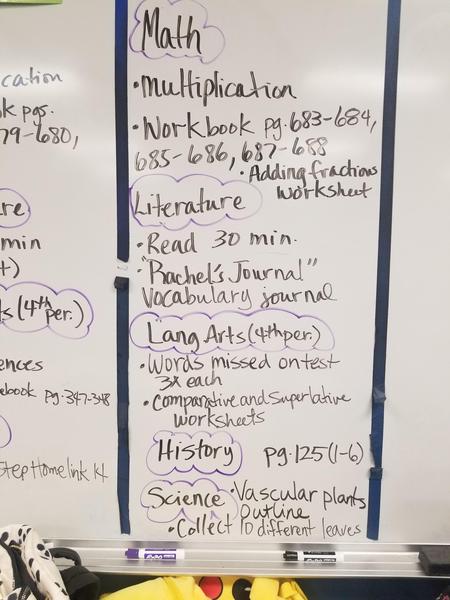 Math
•multiplication
•Workbook pg.683-684,
685-686, 687-688
•Adding fractions
worksheet
Literature
•Read 30 min.
•"Rachel's Journal"
Vocabulary journal
Lang Arts (4th per.)
•Words missed on test
3x each
•comparative and Superlative
worksheets
History pg.125 (1-6)
Science •Vascular plants
Outline
•Collect 10 different leaves
cation
k pgs.
79-680,
re
min
t)
ts (4th per.)
ences
ebook pg.347-348
Step Homelink K4